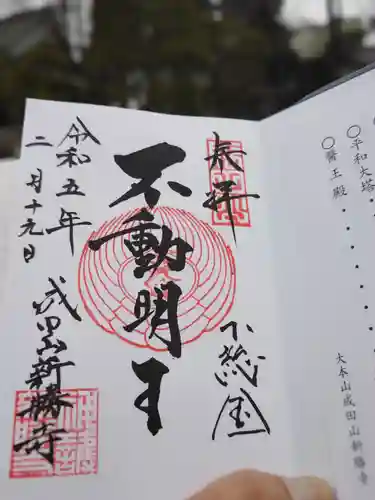 ○平和大塔・・・・
○醫王殿・・・・
大本山成田山新勝寺
奉拝
下總國
不動明王
令和五年
二月十九日
成田山新勝寺